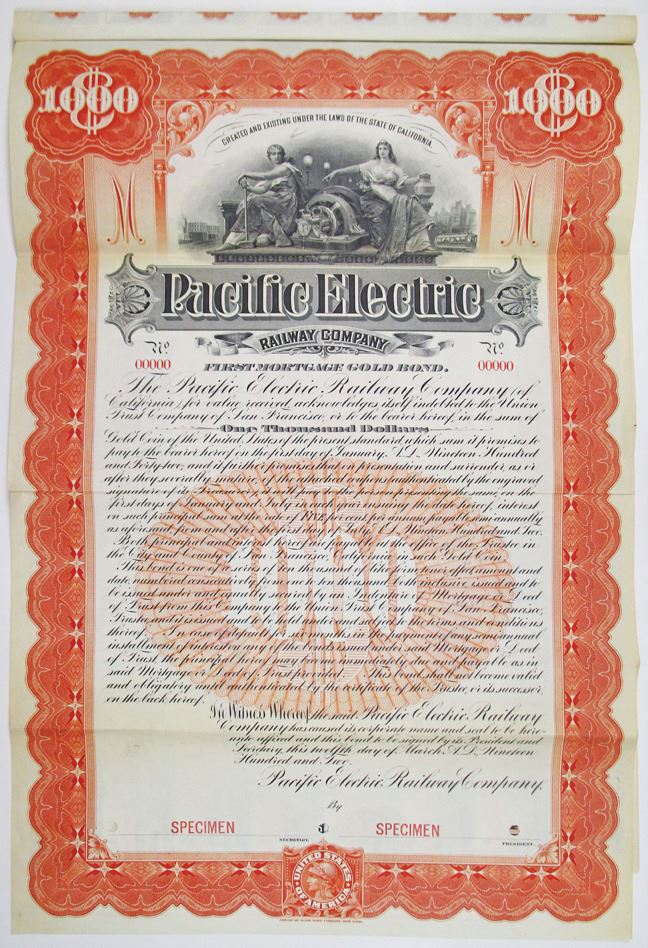 1000
1000
CREATED AND EXISTING UNDER THE LAWS OF THE STATE OF CALIFORNIA.
M
M
Pacific Electric
RAILWAY COMPANY
No.
No.
00000
FIRST MORTGAGE GOLD BOND.
00000
The Pacific Electric Railway Company (of
California) for value received, acknowledges itself indebted to the Union
Trust Company of San Francisco, or to the bearer hereof, in the sum of
One Thousand Dollars
Gold Coin of the United States of the present standard, which sum it promises to
pay to the bearer hereof on the first day of January, A.D. Nineteen Hundred
and Forty-two, and it further promises that on presentation and surrender, as or
after they severally mature, of the attached coupons, authenticated by the engraved
signature of its Treasurer, it will pay to the person presenting the same, on the
first days of January and July in each year ensuing the date hereof, interest
on such principal sum at the rate of FIVE per cent. per annum, payable semi-annually
as aforesaid, from and after the first day of Nineteen Hundred and Two.
Both principal and interest hereof are payable at the office of the Trustee in
the City and County of San Francisco, California, in such Gold Coin.
This bond is one of a series of ten thousand bonds of like tenor, effect, amount and
date, numbered consecutively from one to ten thousand, both inclusive, issued and to
be issued under and equally secured by an Indenture of Mortgage or Deed
of Trust from this Company to the Union Trust Company of San Francisco,
Trustee, and it is issued and held subject to all the terms and conditions
thereof. In case of default in the payment of any semi-annual
installment of interest on any of the bonds issued under said Mortgage or Deed
of Trust, the principal hereof may become immediately due and payable as in
said Mortgage or Deed of Trust provided. This bond shall become valid
and obligatory when authenticated by the certificate of the Trustee, or its successor,
on the back hereof.
In Witness Whereof, the said Pacific Electric Railway
Company has caused its corporate name and seal to be here-
unto affixed and this bond to be signed by its President and
Secretary, this twelfth day of March, A.D. Nineteen
Hundred and Two.
Pacific Electric Railway Company,
By
SPECIMEN
SPECIMEN
SECRETARY.
PRESIDENT.
1000
UNITED STATES
OF AMERICA
AMERICAN BANK NOTE COMPANY, NEW YORK.